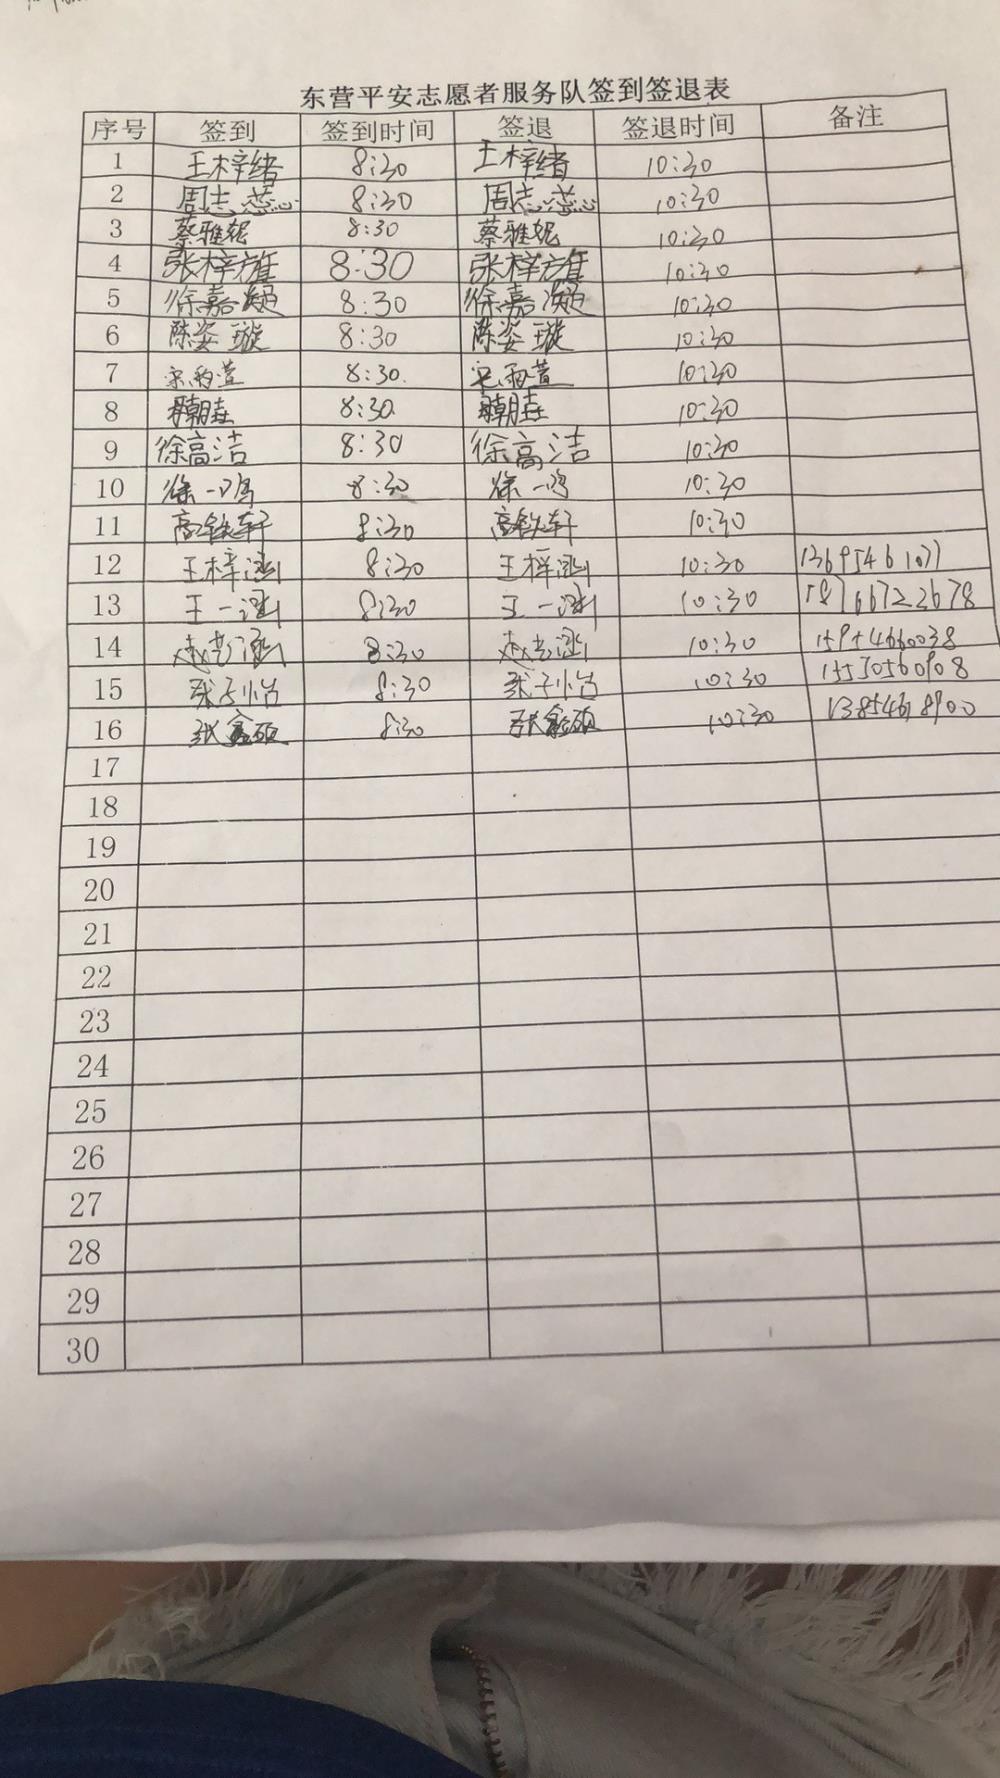 东营平安志愿者服务队签到签退表
序号 签到 签到时间 签退 签退时间 备注
1 王梓绪 8:30 王梓绪 10:30
2 周志蕊 8:30 周志蕊 10:30
3 蔡雅妮 8:30 蔡雅妮 10:30
4 张梓旌 8:30 张梓旌 10:30
5 徐嘉凝 8:30 徐嘉凝 10:30
6 陈姿璇 8:30 陈姿璇 10:30
7 宋雨萱 8:30 宋雨萱 10:30
8 8:30 10:30
9 徐高洁 8:30 徐高洁 10:30
10 徐一鸣 8:30 徐一鸣 10:30
11 高铁轩 8:30 高铁轩 10:30
12 王梓涵 8:30 王梓涵 10:30 13695461077
13 王一涵 8:30 王一涵 10:30 18766722678
14 赵艺涵 8:30 赵艺涵 10:30 15954660038
15 张子怡 8:30 张子怡 10:30 15550560908
16 张鑫硕 8:30 张鑫硕 10:30 13854618900
17
18
19
20
21
22
23
24
25
26
27
28
29
30